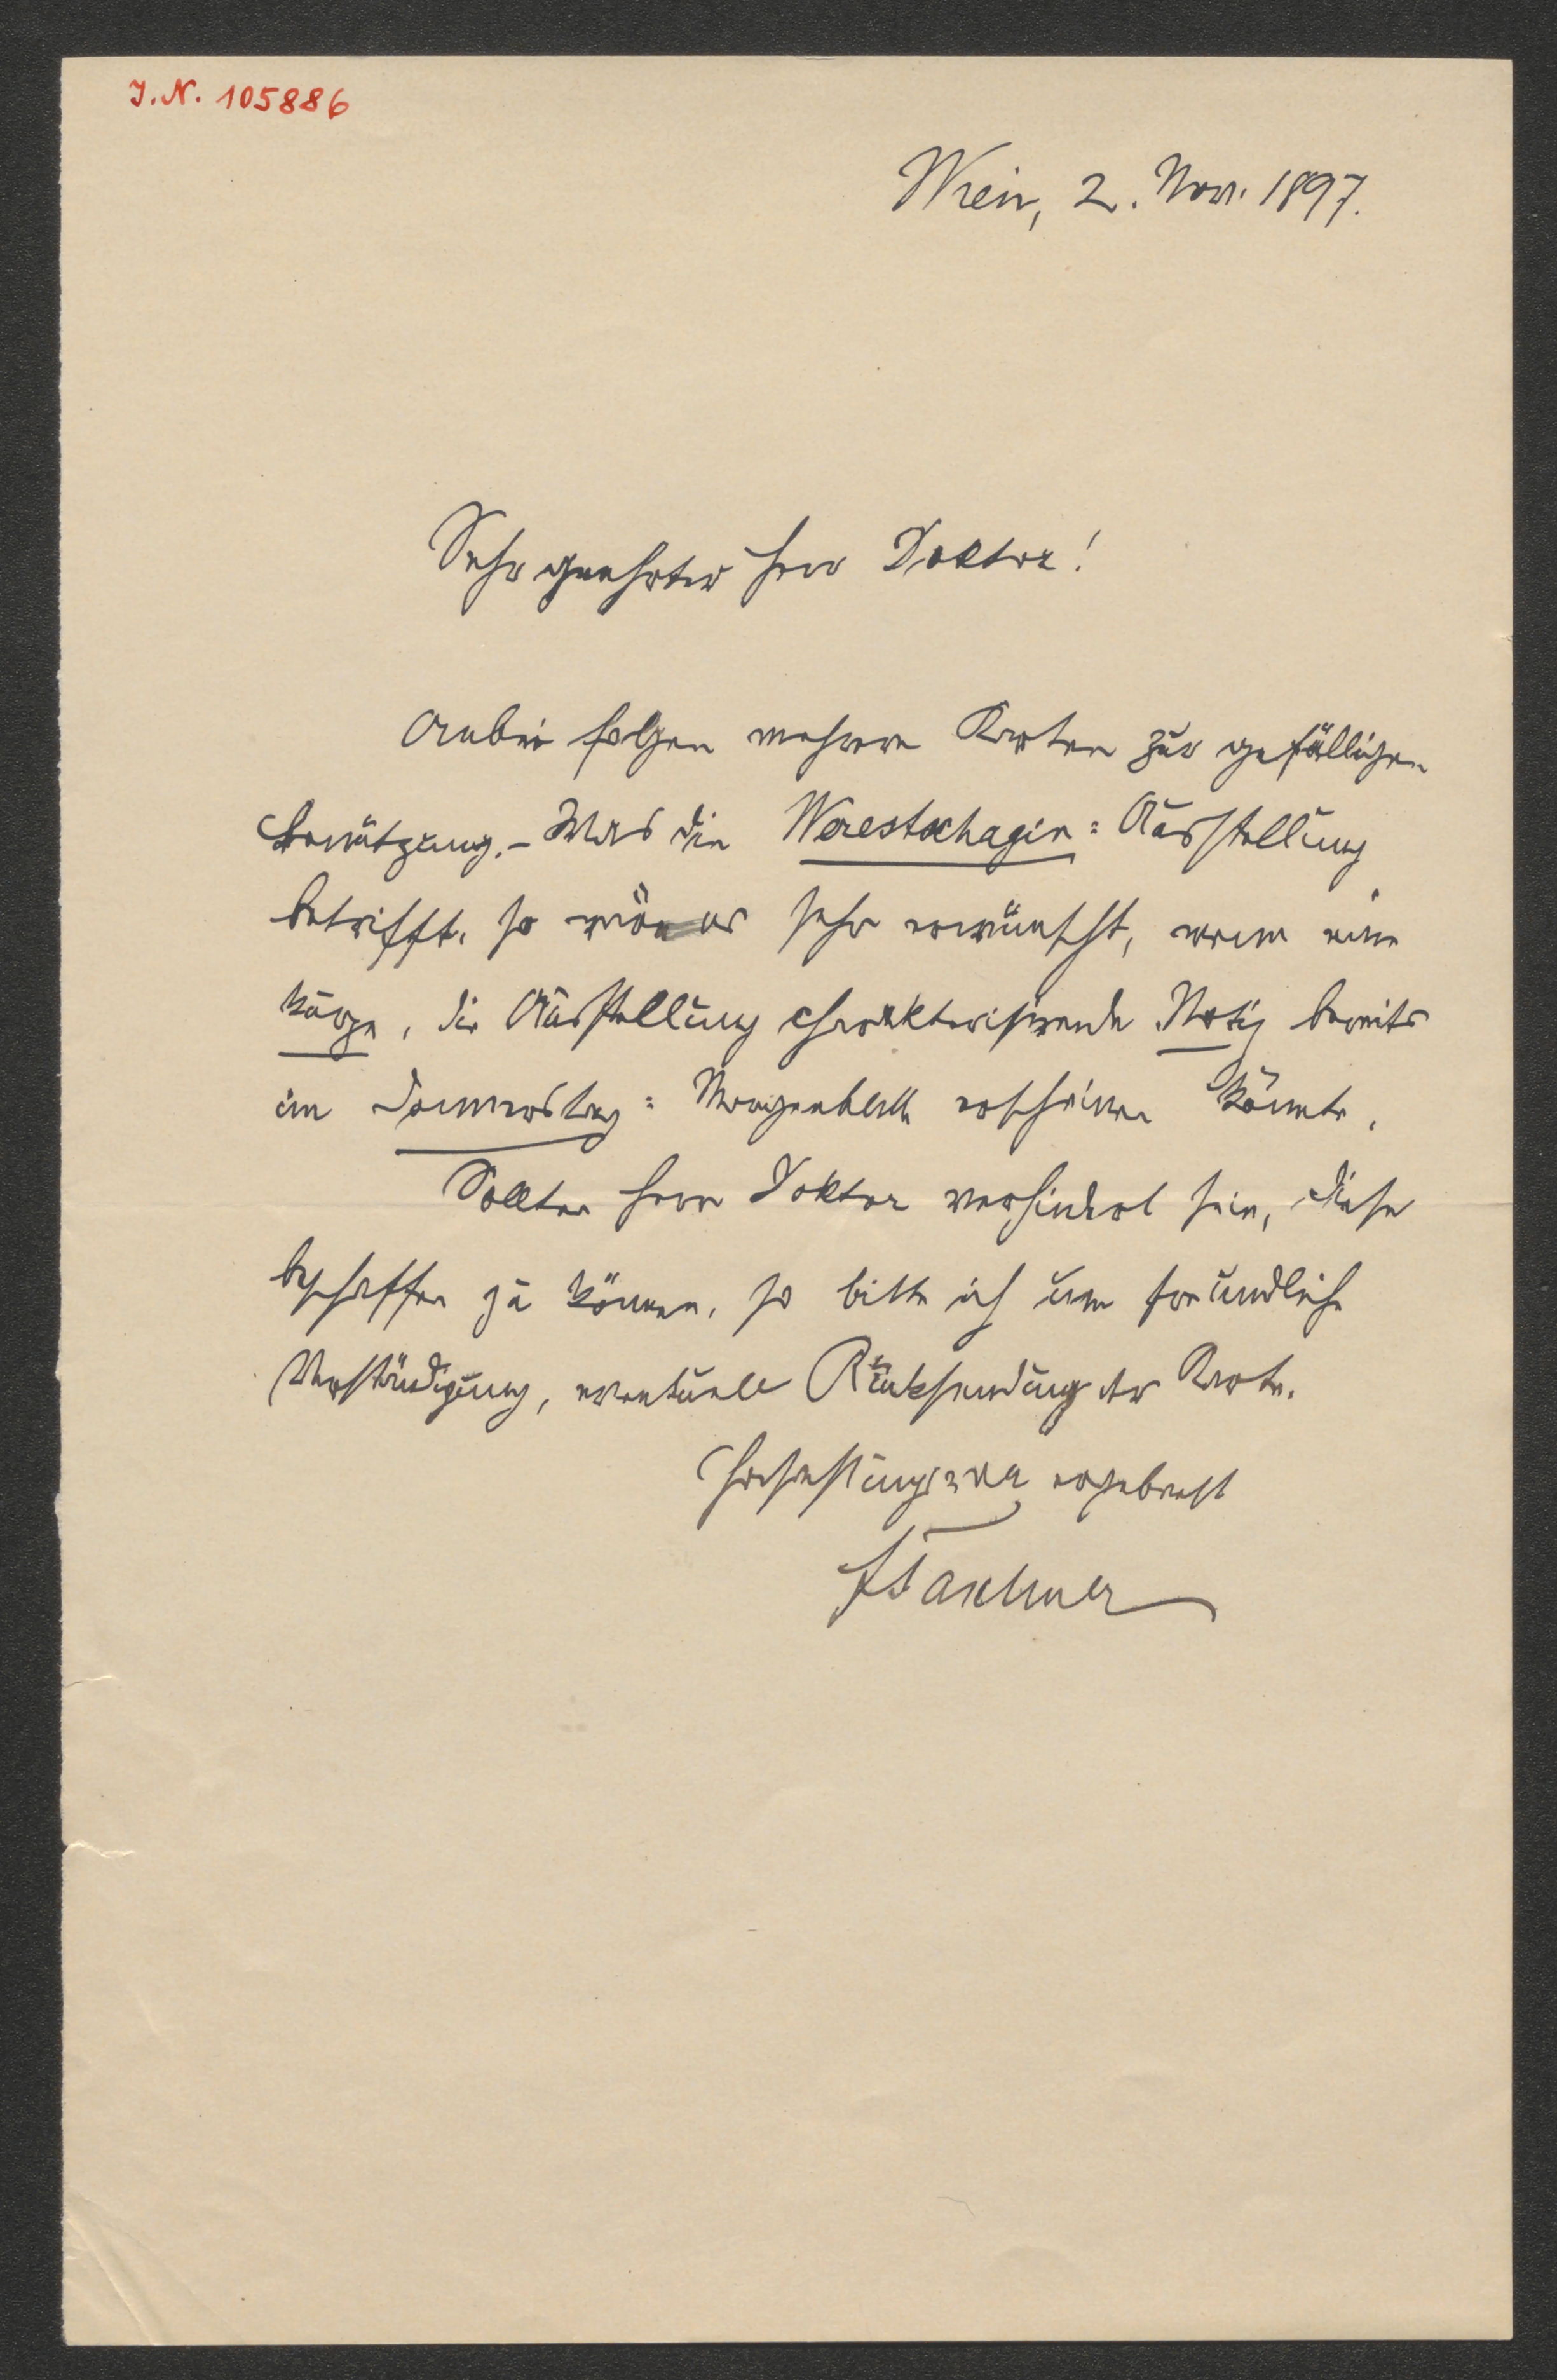 J. N. 105886
Wien, 2. Nov. 1897.
Sehr geehrter Herr Doktor!
Anbei folgen mehrere Karten zur gefälligen
Benützung. – Was die Werestschagin-Ausstellung
betrifft, so wär es sehr erwünscht, wenn eine
kurze, die Ausstellung charakterisirende Notiz bereits
im Donnerstag-Morgenblatt erscheinen könnte.
Sollten Herr Doktor verhindert sein, diese
beschaffen zu können, so bitte ich um freundliche
Verständigung, eventuell Rücksendung der Karte.
Hochachtungsvoll ergebenst